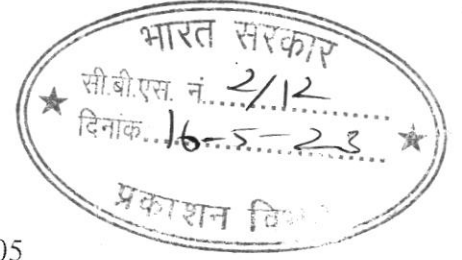 भारत सरकार
सी.बी.एस. नं. 2/12
दिनांक 16-5-23
प्रकाशन
05